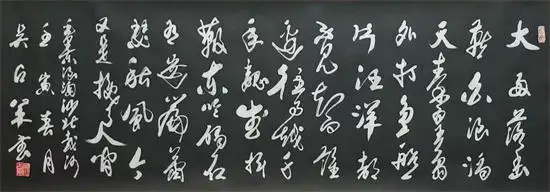 大雨落幽
燕白浪滔
天秦皇岛
外打鱼船
一片汪洋都
不见知向谁
边往事越千
年魏武挥
鞭东临碣石
有遗篇萧
瑟秋风今
又是换了人间
浪淘沙北戴河
壬寅春月
吴占书